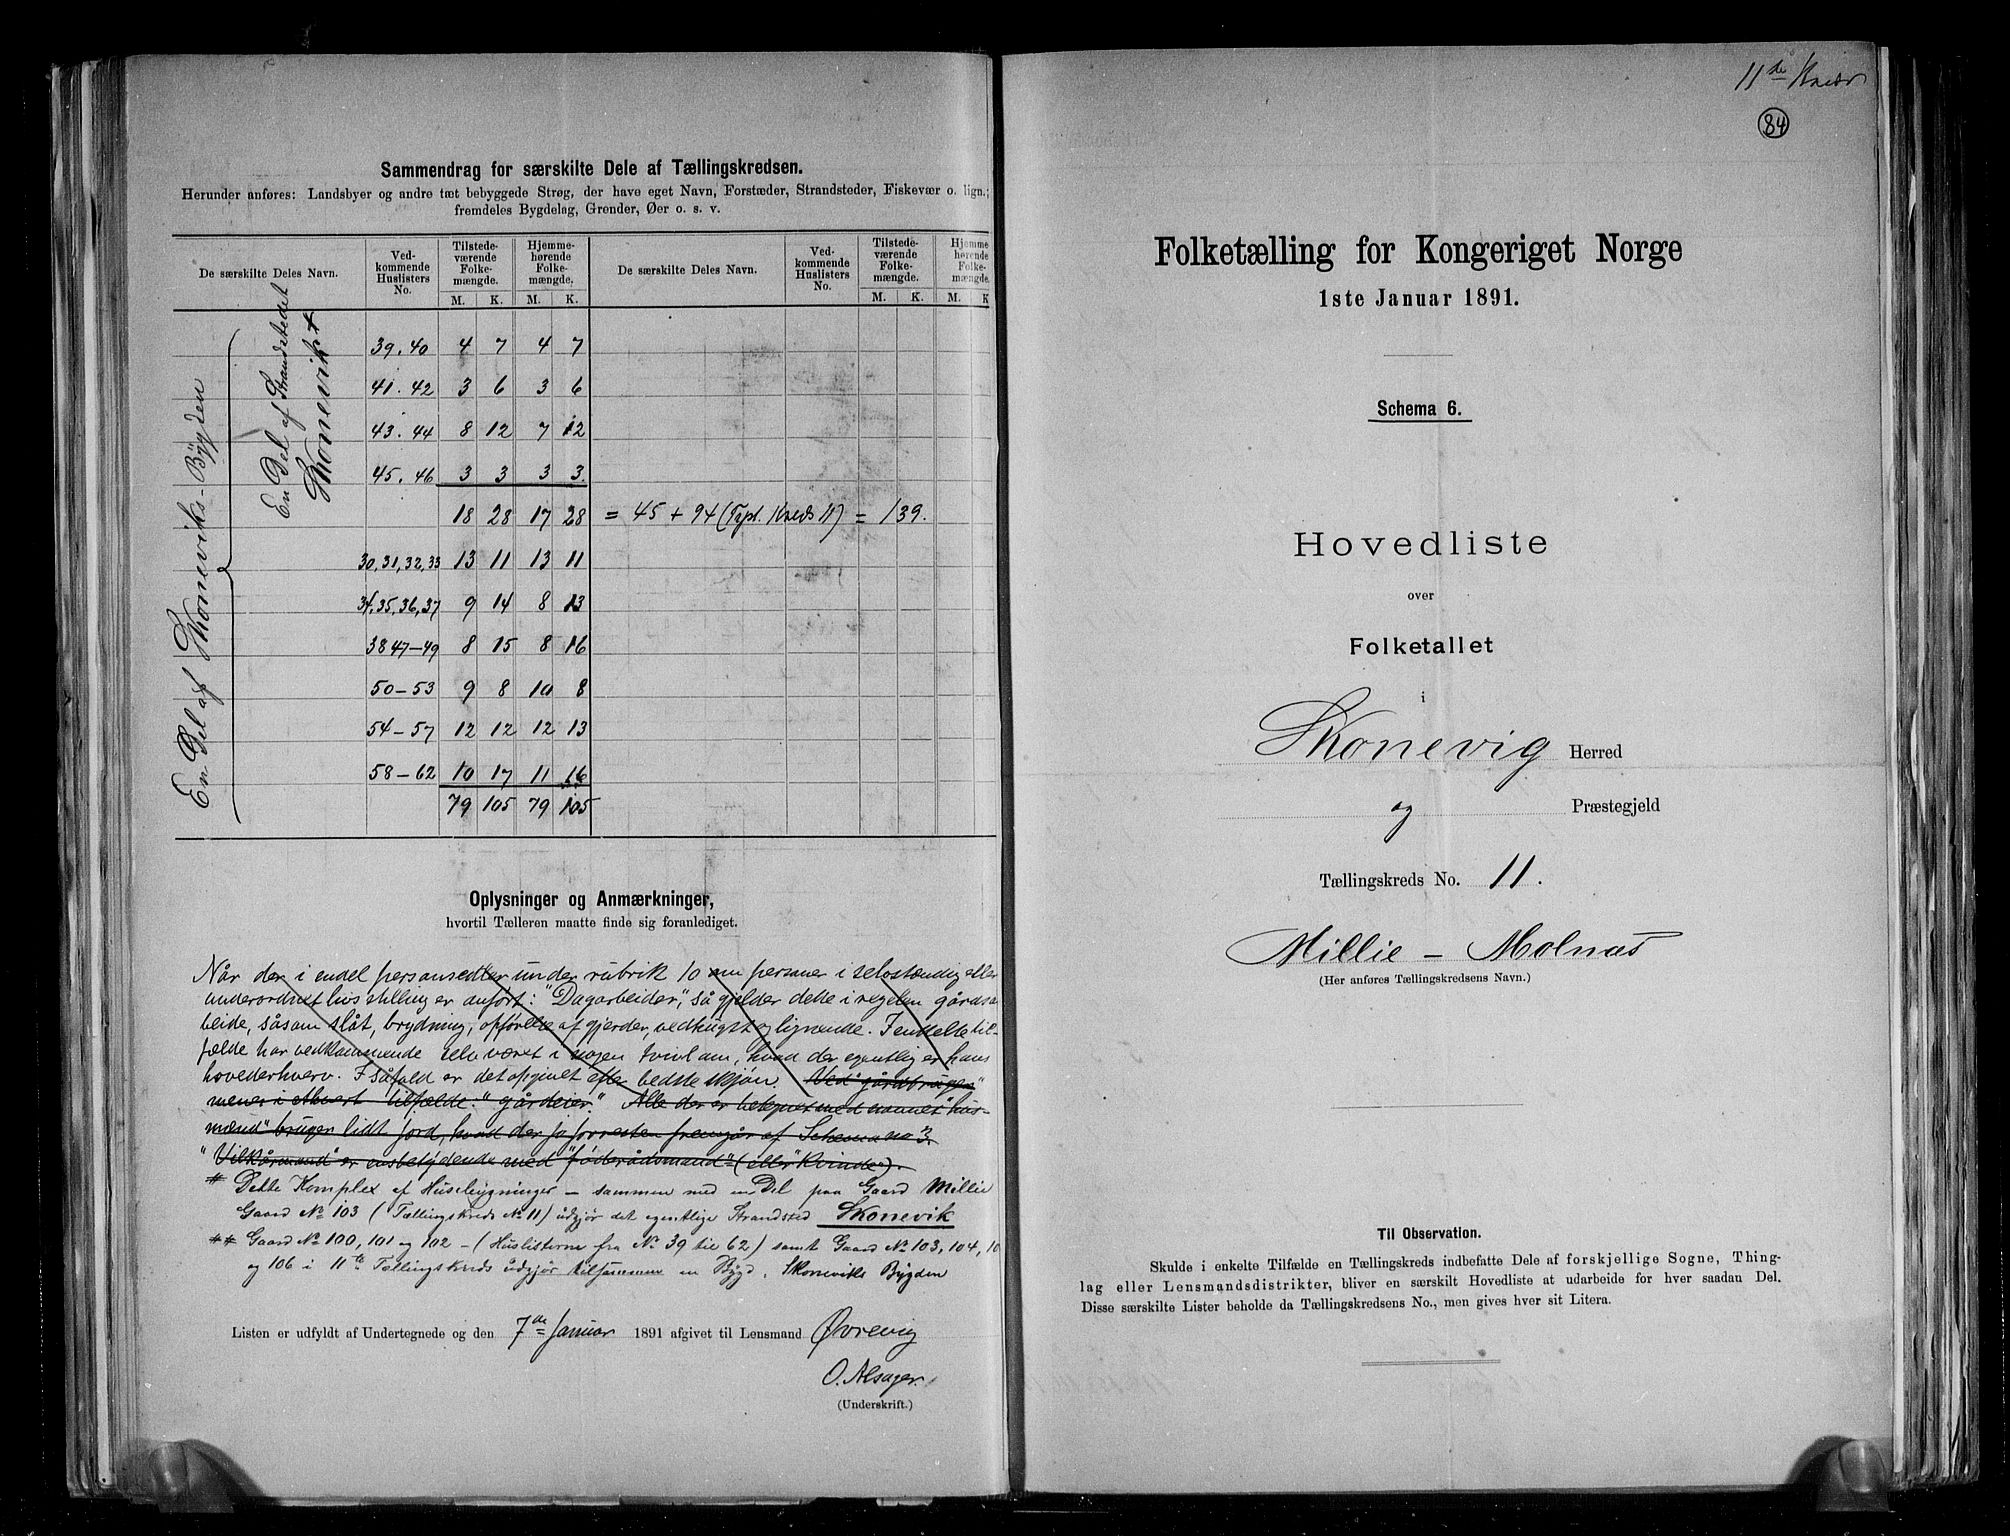 Sammendrag for særskilte Dele af Tællingskredsen.
Herunder anføres: Landsbyer og andre tæt bebyggede Strøg, der have eget Navn, Forstæder, Strandsteder, Fiskevær o. lign.;
fremdeles Bygdelag, Grender, Øer o. s. v.
De særskilte Deles Navn. Ved-kommende Huslisters No. Tilstede-værende Folke-mængde. Hjemme-hørende Folke-mængde. De særskilte Deles Navn. Ved-kommende Huslisters No. Tilstede-værende Folke-mængde. Hjemme hørende Folke-mængde.
M. K. M. K. M. K. M. K
En Del af Skoneviks-Bÿgden
En Del af Strandstedet
Skonevik
39. 40 4 7 4 7
41. 42 3 6 3 6
43. 44 8 12 7 12
45. 46 3 3 3 3.
18 28 17 28 = 45 + 94 (Kreds 11) = 139.
30, 31, 32, 33 13 11 13 11
34, 35, 36, 37 9 14 8 13
38 47-49 8 15 8 16
50-53 9 8 10 8
54-57 12 12 12 13
58-62 10 17 11 16
79 105 79 105
Oplysninger og Anmærkninger,
hvortil Tælleren maatte finde sig foranlediget.
Når der i endel personsedler under rubrik 10 om personer i selvstændig eller
underordnet livsstilling er anført: "Dagarbeider", så gjelder dette i regelen gårdsar
beide, såsom slåt, brydning, opførelse af gjerder, vedhugst og lignende. I enkelte til-
fælde har vedkommende selv været i nogen tvivl om, hvad der egentlig er hans
hovederhverv. I såfald er det opgivet efter bedste skjøn. Ved "gårdbruger"
menes i ethvert tilfælde: "gårdeier". Alle der er betegnet med navnet "hus-
mænd" bruger lidt jord, hvad der jo forresten fremgår af Schema no 3.
"Vilkårmand" er ensbetydende med "føderådsmand" (eller Kvinde).
# Dette Komplex af Husebygninger - sammen med en Del paa Gaard Millie
Gaard No 103 (Tællingskreds No 11) udgjør det egentlige Strandsted Skonevik
## Gaard No 100, 101 og 102 - (Huslisterne fra No 39 til 62) samt Gaard No 103, 104, 10
og 106 i 11te Tællingskreds udgjør tilsammen en Bygd, Skoneviks Bygden
Listen er udfyldt af Undertegnede og den 7de Januar 1891 afgivet til Lensmand Øvrevig
O. Alsager.
(Underskrift.)
11de
84
Folketælling for Kongeriget Norge
1ste Januar 1891.
Schema 6.
Hovedliste
over
Folketallet
i
Skonevig Herred
og Præstegjeld
Tællingskreds No. 11.
Millie - Molnæs
(Her anføres Tællingskredsens Navn.)
Til Observation.
Skulde i enkelte Tilfælde en Tællingskreds indbefatte Dele af forskjellige Sogne, Thing-
lag eller Lensmandsdistrikter, bliver en særskilt Hovedliste at udarbeide for hver saadan Del.
Disse særskilte Lister beholde da Tællingskredsens No., men gives hver sit Litera.